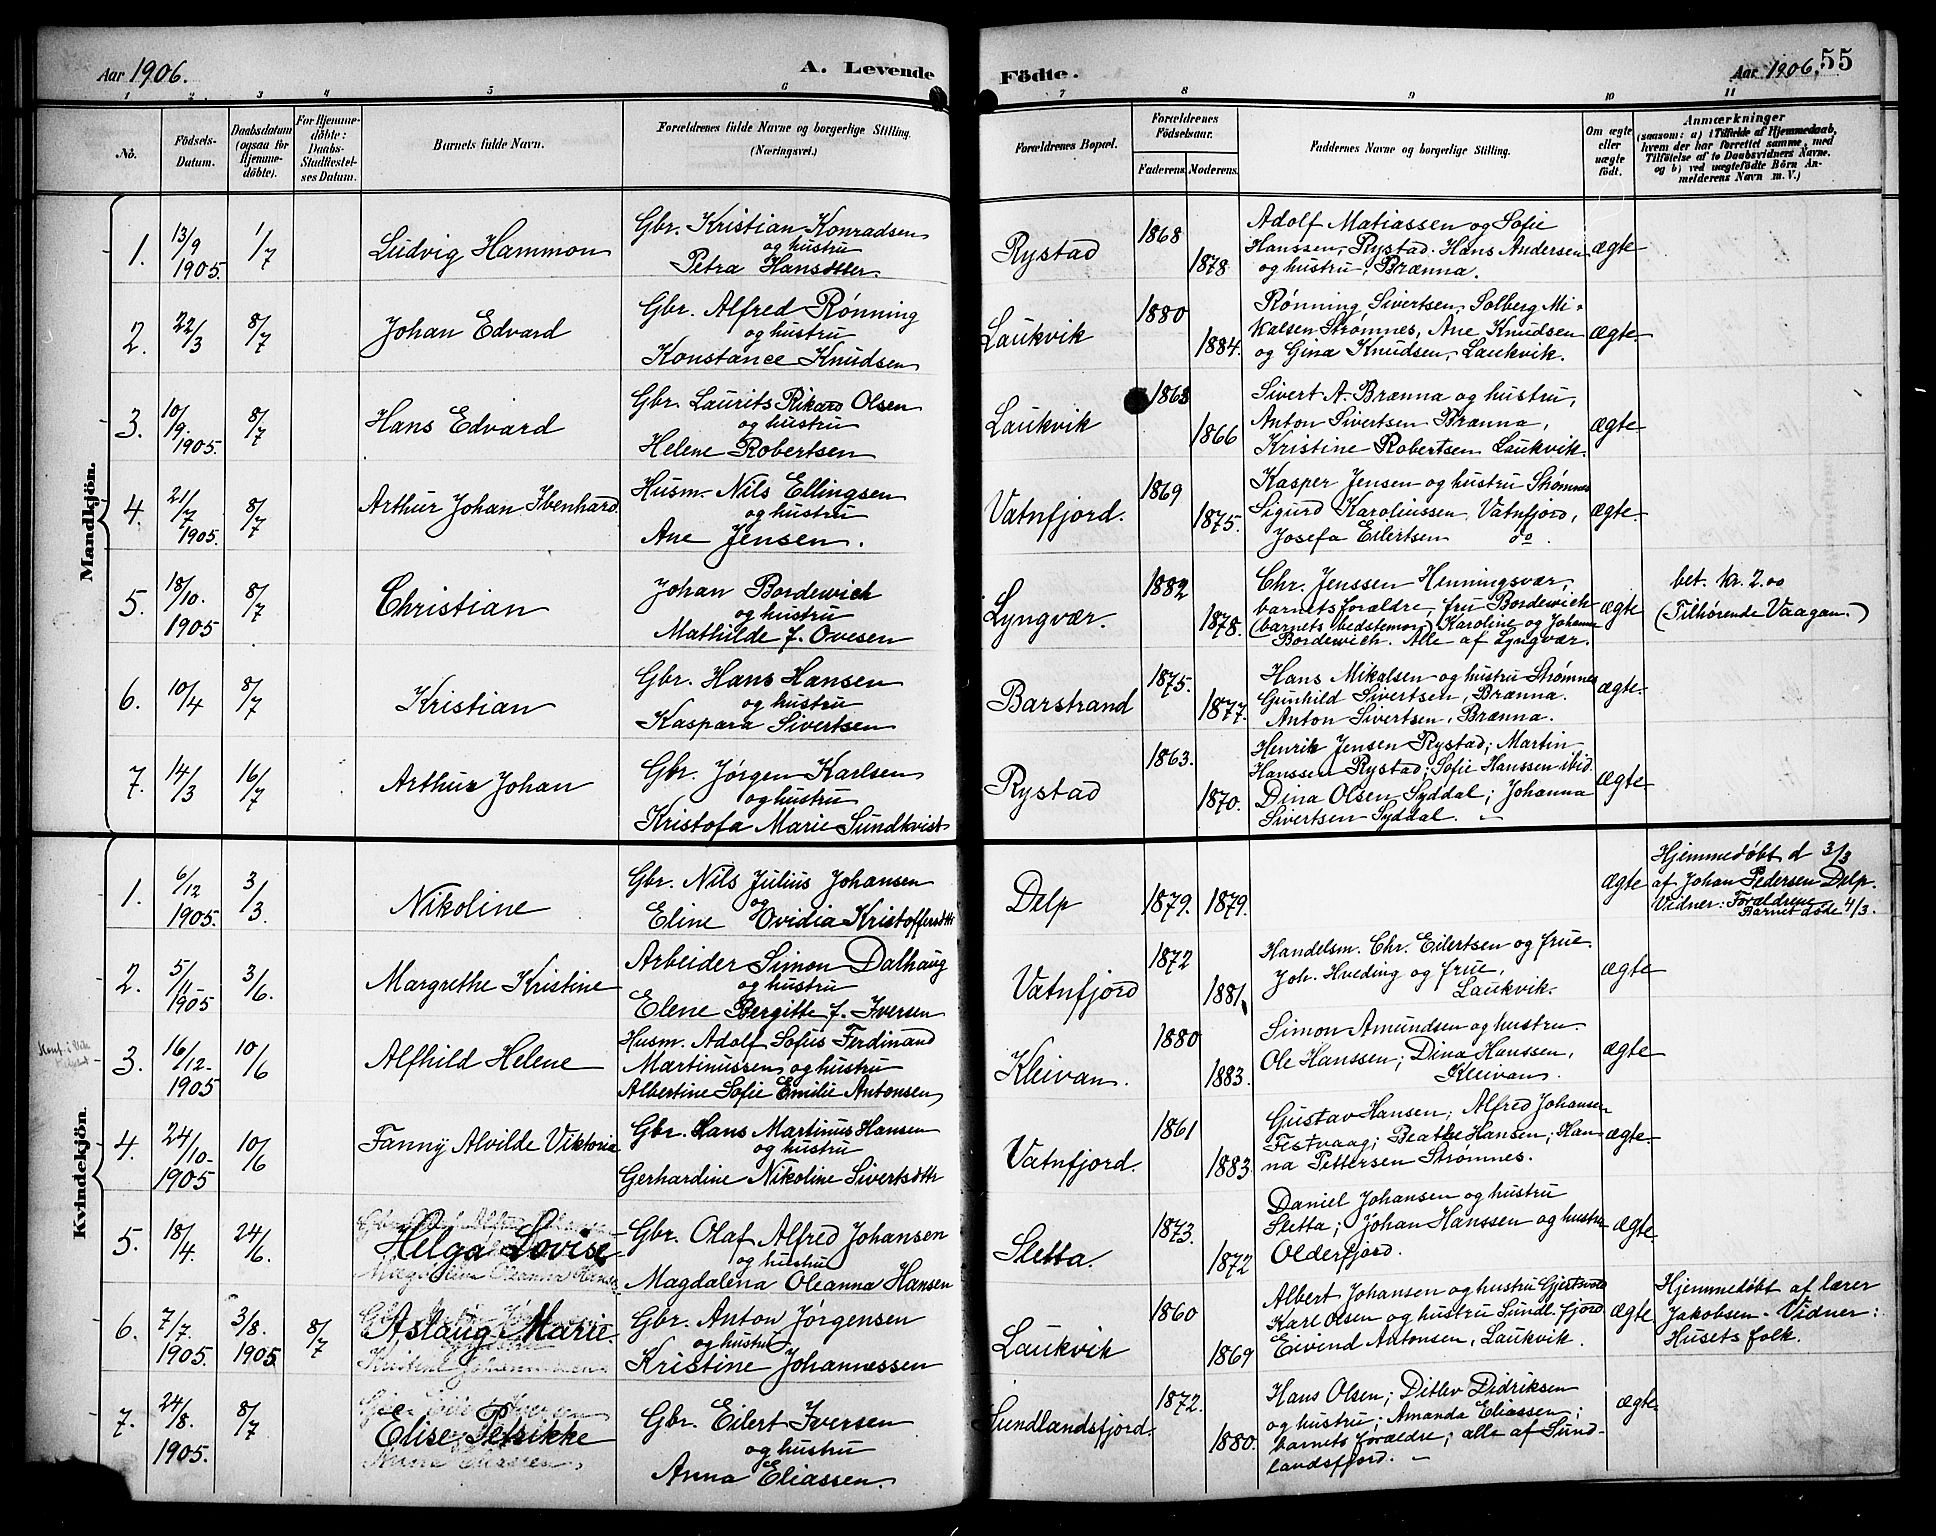 Aar 1906.
A. Levende
Födte.
Aar 1906.
55
1 2 3 4 5 6 7 8 9 10 11
No.
Födsels-
Datum.
Daabsdatum
(ogsaa for
Hjemme-
döbte).
For Hjemme-
döbte:
Daabs-
Stadfæstel-
ses Datum.
Barnets fulde Navn.
Forældrenes fulde Navne og borgerlige Stilling.
(Næringsvei.)
Forældrenes Bopæl.
Forældrenes
Födselsaar.
Faderens. Moderens.
Faddernes Navne og borgerlige Stilling.
Om ægte
eller
uægte
født.
Anmærkninger
(saasom: a) i Tilfælde af Hjemmedaab,
hvem der har forrettet samme, med
Tilföielse af to Daabsvidners Navne,
og b) ved uægtefödte Börn An-
melderens Navn m. V.)
Mandkjön.
1.
13/9
1905.
1/7
Ludvig Hammon
Gbr. Kristian Konradsen
og hustru
Petra Hansdtter.
Rystad
1868
1878
Adolf Matiassen og Sofie
Hanssen, Rystad. Hans Andersen
og hustru, Brænna.
ægte
2.
22/3
8/7
Johan Edvard
Gbr. Alfred Rønning
og hustru
Konstance Knudsen
Laukvik
1880
1884.
Rønning, Sivertsen, Solberg Mi-
kalsen Strømnes, Ane Knudsen
og Gina Knudsen, Laukvik.
ægte
3.
10/9.
1905.
8/7
Hans Edvard
Gbr. Laurits Rikard Olsen
og hustru
Helene Robertsen
Laukvik
1868
1866
Sivert A. Brænna og hustru,
Anton Sivertsen Brænna,
Kristine Robertsen Laukvik.
ægte
4.
21/7
1905.
8/7
Arthur Johan Ibenhard
Husm. Nils Ellingsen
og hustru
Ane Jensen.
Vatnfjord.
1869
1875.
Kasper Jensen og hustru Strømnes
Sigurd Karoliussen, Vatnfjord,
Josefa Eilertsen do.
ægte.
5.
18/10.
1905
8/7
Christian
Johan Bordewich
og hustru
Mathilde f. Ovesen
Lyngvær.
1882
1878.
Chr. Jenssen Henningsvær,
barnets forældre, fru Bordewich
(barnets bedstemor) Karoline og Johanne
Bordewich. Alle af Lyngvær.
ægte
bet. kr. 2.00
(Tilhørende Vaagan.)
6.
10/4
8/7
Kristian
Gbr. Hans Hansen
og hustru
Kaspara Sivertsen
Barstrand
1875.
1877.
Hans Mikalsen og hustru Strømnes
Gunhild Sivertsen, Brænna.
Anton Sivertsen, Brænna.
ægte.
7.
14/3
16/7
Arthur Johan
Gbr. Jørgen Karlsen
og hustru
Kristofa Marie Sundkvist
Rystad
1863.
1870.
Henrik Jensen Rystad; Martin
Hanssen Rystad; Sofie Hanssen ibid.
Dina Olsen Syddal; Johanna
Sivertsen Syddal.
ægte
Kvindekjön.
1.
6/12
1905.
3/3.
Nikoline
Gbr. Nils Julius Johansen
og
Eline Ovidia Kristoffersdtr
Delp
1879.
1879.
ægte
Hjemmedøbt d 3/3
af Johan Pedersen Delp.
Vidner: Forældrene
Barnet døde 4/3.
2.
5/11.
1905
3/6.
Margrethe Kristine
Arbeider Simon Dalhaug
og hustru
Elene Bergitte f. Iversen
Vatnfjord
1872
1881
Handelsm. Chr. Eilertsen og frue.
Joh. Hveding og frue,
Laukvik.
ægte
3.
16/12.
1905
10/6
Alfhild Helene
Husm. Adolf Sofus Ferdinand
Martinussen og hustru
Albertine Sofie Emilie Antonsen
Kleivan.
1880
1883.
Simon Amundsen og hustru
Ole Hanssen; Dina Hanssen,
Kleivan.
ægte
4.
24/10.
1905
10/6
Fanny Alvilde Viktoria
Gbr. Hans Martinus Hansen
og hustru
Gerhardine Nikoline Sivertsdttr
Vatnfjord.
1861
1883.
Gustav Hansen; Alfred Johansen
Festvaag; Beathe Hansen; Han-
na Pettersen Strømnes.
ægte
5.
18/4.
24/6.
Helga Lovise
Gbr. Olaf Alfred Johansen
og hustru
Magdalena Oleanna Hansen
Sletta.
1873.
1872
Daniel Johansen og hustru
Sletta; Johan Hanssen og hustru
Olderfjord.
ægte
6.
7/7.
1905.
3/8.
1905.
8/7
Aslaug Marie
Gbr. Anton Jørgensen
og hustru
Kristine Johannessen
Laukvik
1860
1869
Albert Johansen og hustru
Karl Olsen og hustru Sundl.fjord
Eivind Antonsen, Laukvik.
ægte
Hjemmedøbt af lærer
Jakobsen. Vidner:
Husets folk.
7.
24/8.
1905.
8/7
Elise Petrikke
Gbr. Eilert Iversen
og hustru
Anna Eliassen.
Sundlandsfjord.
1872.
1880.
Hans Olsen; Ditlev Didriksen
og hustru; Amanda Eliassen;
barnets forældre; alle af Sund-
landsfjord.
ægte